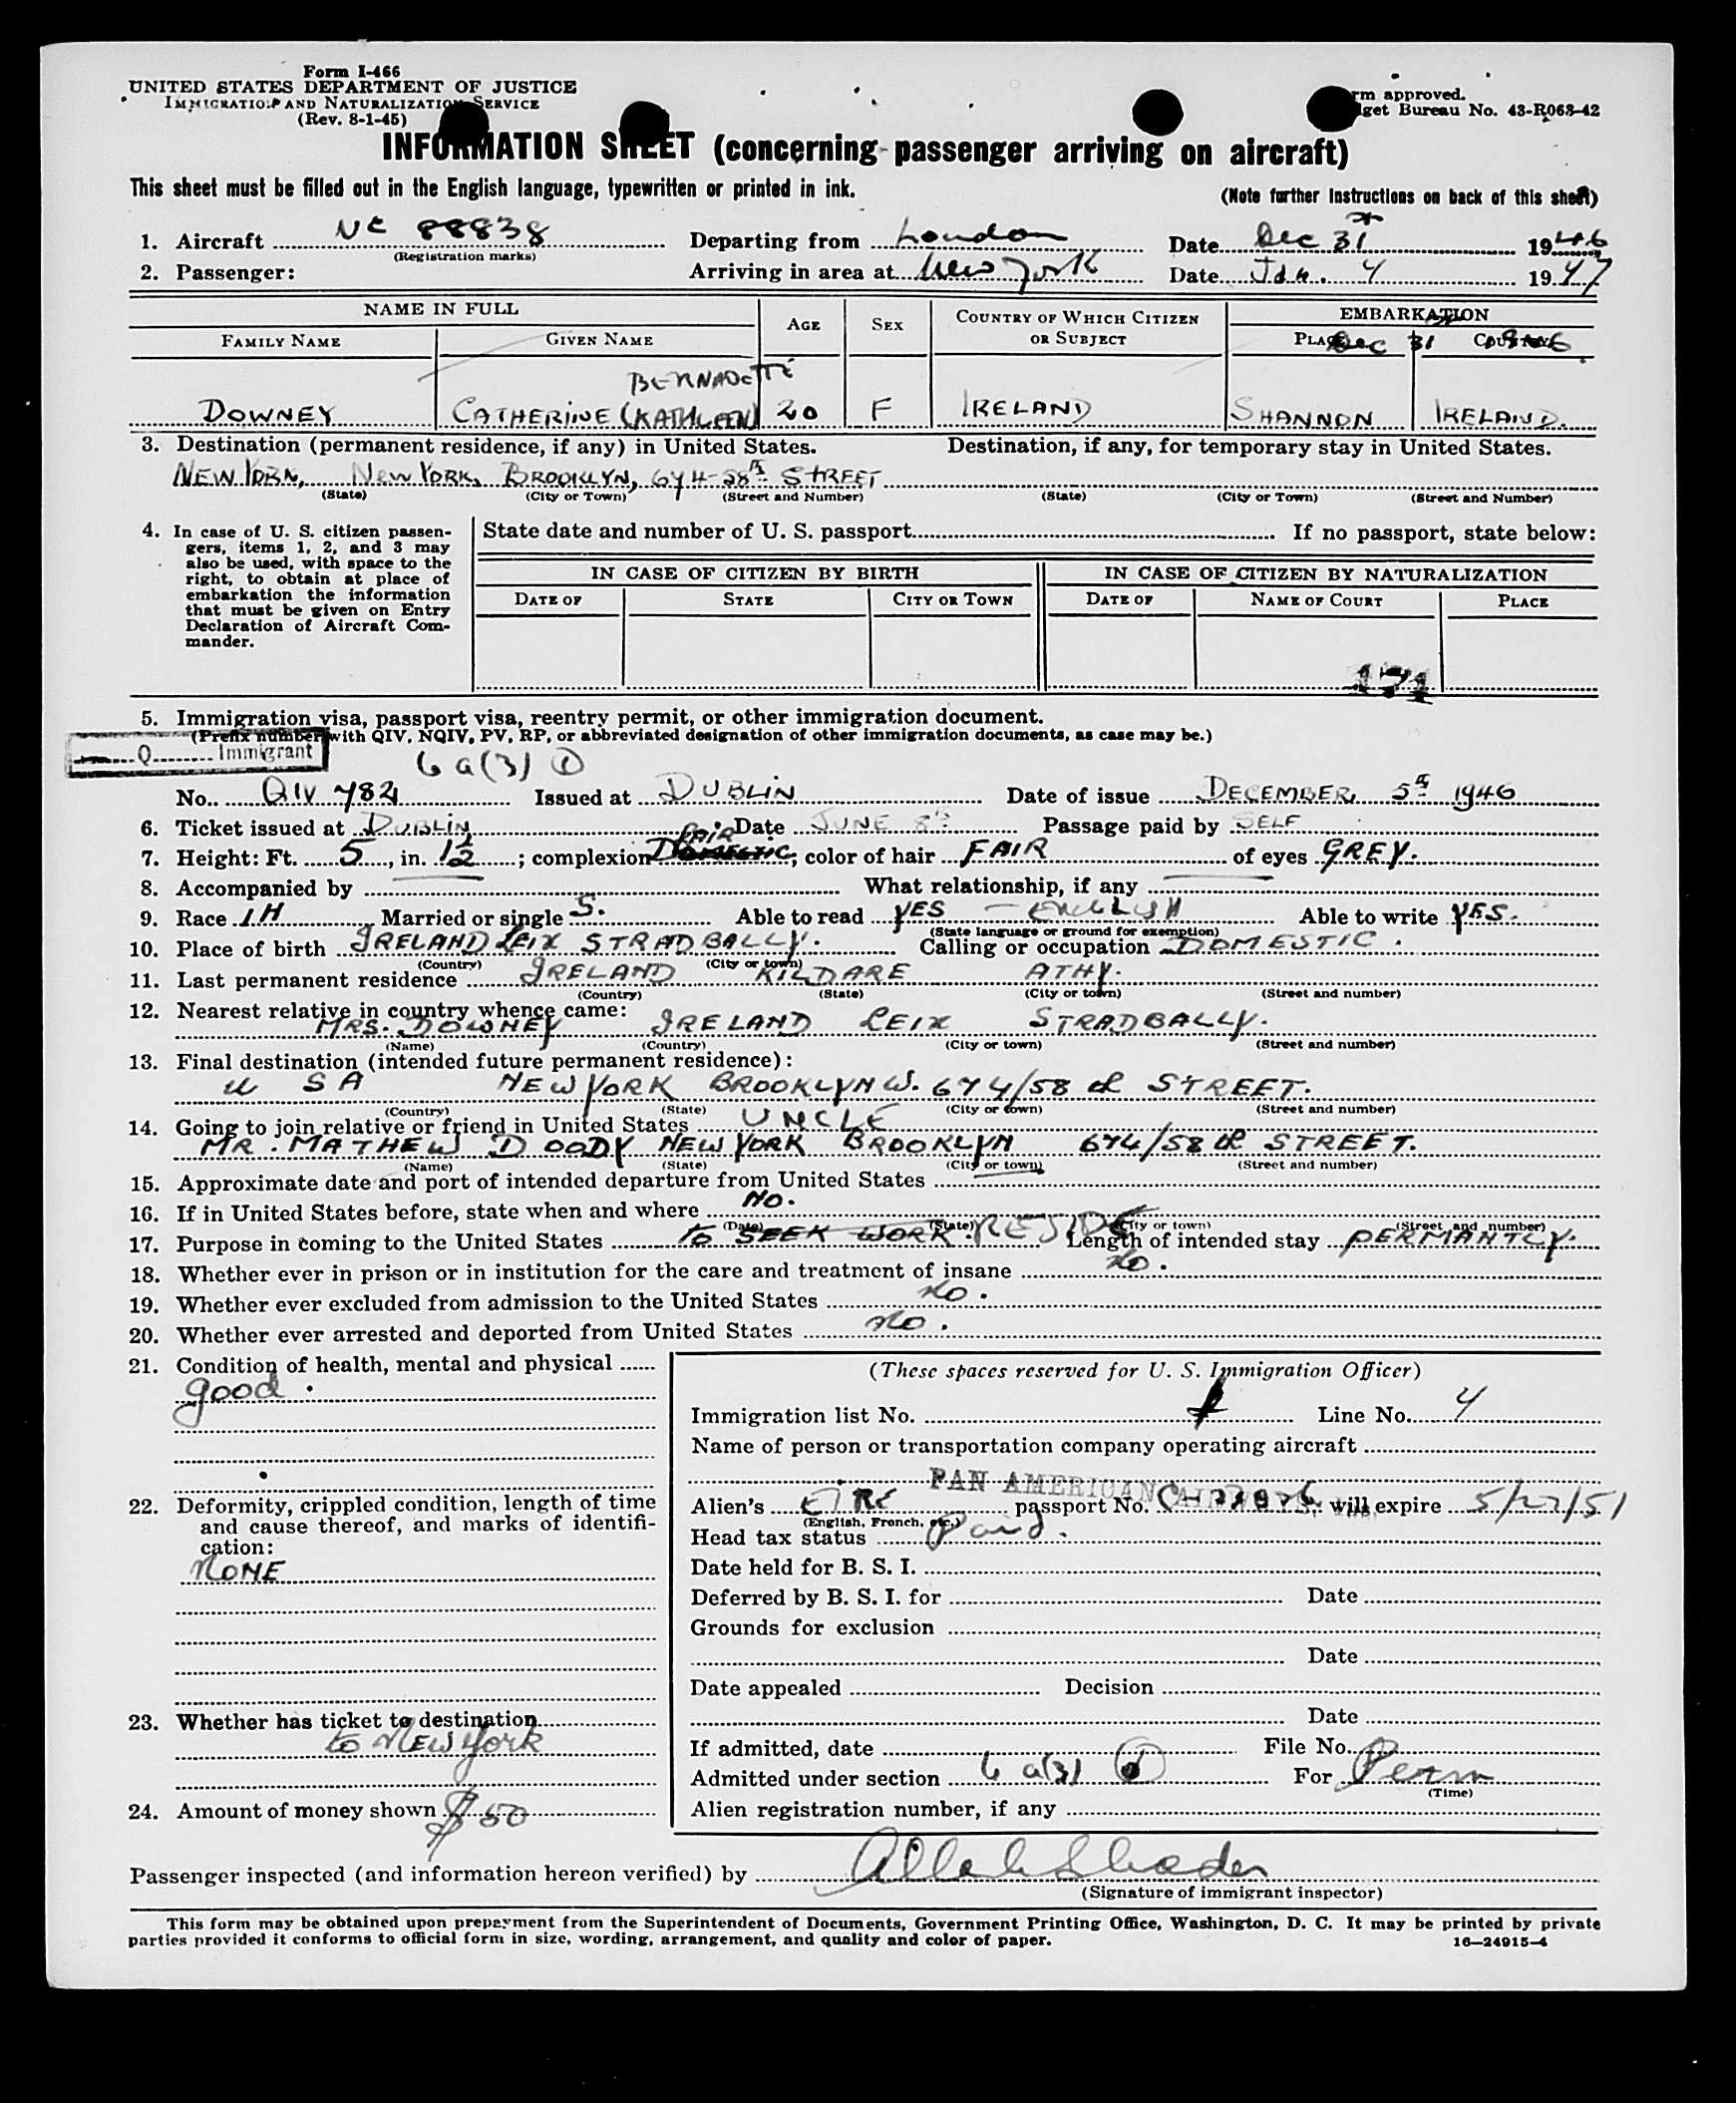 Form I-466
UNITED STATES DEPARTMENT OF JUSTICE
IMMIGRATION AND NATURALIZATION SERVICE
(Rev. 8-1-45)
rm approved.
get Bureau No. 43-R063-42
INFORMATION SHEET (concerning passenger arriving on aircraft)
This sheet must be filled out in the English language, typewritten or printed in ink.
(Note further instructions on back of this sheet)
1. Aircraft NC 88838 Departing from London Date Dec 31 1946
(Registration marks)
2. Passenger: Arriving in area at New York Date Jan. 4 1947
NAME IN FULL AGE SEX COUNTRY OF WHICH CITIZEN OR SUBJECT EMBARKATION
FAMILY NAME GIVEN NAME PLACE COUNTRY
Dec 31
BERNADETTE
DOWNEY CATHERINE (KATHLEEN) 20 F IRELAND SHANNON IRELAND.
3. Destination (permanent residence, if any) in United States. Destination, if any, for temporary stay in United States.
NEW YORK, NEW YORK, BROOKLYN, 674-58th STREET
(State) (City or Town) (Street and Number) (State) (City or Town) (Street and Number)
4. In case of U. S. citizen passen-
gers, items 1, 2, and 3 may
also be used, with space to the
right, to obtain at place of
embarkation the information
that must be given on Entry
Declaration of Aircraft Com-
mander.
State date and number of U. S. passport If no passport, state below:
IN CASE OF CITIZEN BY BIRTH IN CASE OF CITIZEN BY NATURALIZATION
DATE OF STATE CITY OR TOWN DATE OF NAME OF COURT PLACE
171
5. Immigration visa, passport visa, reentry permit, or other immigration document.
(Prefix number with QIV, NQIV, PV, RP, or abbreviated designation of other immigration documents, as case may be.)
Q Immigrant
6 a(3) D
No. QIV 782 Issued at DUBLIN Date of issue DECEMBER 5th 1946
6. Ticket issued at DUBLIN Date JUNE 8th Passage paid by SELF
7. Height: Ft. 5, in. 1½; complexion FAIR; color of hair FAIR of eyes GREY.
8. Accompanied by What relationship, if any
9. Race IH Married or single S. Able to read YES - ENGLISH Able to write YES.
(State language or ground for exemption)
10. Place of birth IRELAND LEIX STRADBALLY. Calling or occupation DOMESTIC.
(Country) (City or town)
11. Last permanent residence IRELAND KILDARE ATHY.
(Country) (State) (City or town) (Street and number)
12. Nearest relative in country whence came:
MRS. DOWNEY IRELAND LEIX STRADBALLY.
(Name) (Country) (City or town) (Street and number)
13. Final destination (intended future permanent residence):
U S A NEW YORK BROOKLYN W. 674/58 th STREET.
(Country) (State) (City or town) (Street and number)
14. Going to join relative or friend in United States UNCLE
MR. MATHEW DOODY NEW YORK BROOKLYN 674/58 th STREET.
(Name) (State) (City or town) (Street and number)
15. Approximate date and port of intended departure from United States
16. If in United States before, state when and where NO.
(Date) (State) (City or town) (Street and number)
17. Purpose in coming to the United States to SEEK WORK. RESIDE Length of intended stay PERMANTLY.
18. Whether ever in prison or in institution for the care and treatment of insane No.
19. Whether ever excluded from admission to the United States No.
20. Whether ever arrested and deported from United States No.
21. Condition of health, mental and physical
good.
22. Deformity, crippled condition, length of time
and cause thereof, and marks of identifi-
cation:
NONE
23. Whether has ticket to destination
to New York
24. Amount of money shown $50
(These spaces reserved for U. S. Immigration Officer)
Immigration list No. Line No. 4
Name of person or transportation company operating aircraft
PAN AMERICAN AIRWAYS, INC.
Alien's EIRE passport No. will expire 5/27/51
(English, French, etc.)
Head tax status Paid.
Date held for B. S. I.
Deferred by B. S. I. for Date
Grounds for exclusion
Date
Date appealed Decision
Date
If admitted, date File No.
Admitted under section 6 a(3) For Perm
(Time)
Alien registration number, if any
Passenger inspected (and information hereon verified) by
(Signature of immigrant inspector)
This form may be obtained upon prepayment from the Superintendent of Documents, Government Printing Office, Washington, D. C. It may be printed by private
parties provided it conforms to official form in size, wording, arrangement, and quality and color of paper.
16—24915-4